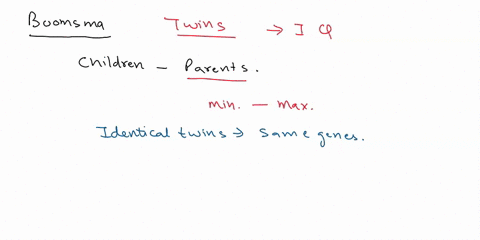 Boomsma Twins → IQ
Children - Parents.
min. - max.
Identical twins → Same genes.